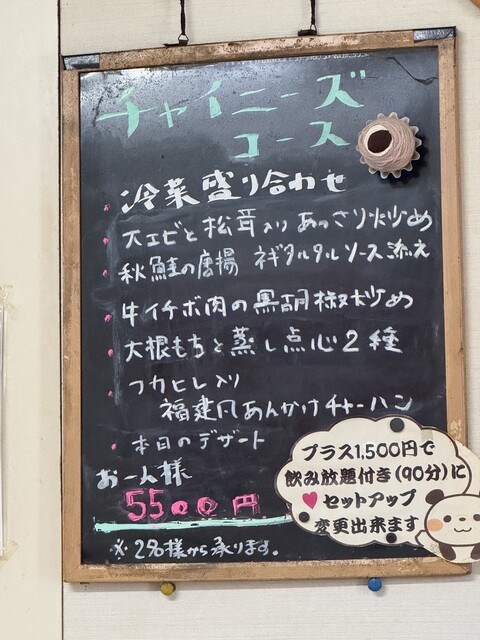 チャイニーズ
コース
冷菜盛り合わせ
大エビと松茸入りあっさり炒め
秋鮭の唐揚 ネギタルタルソース添え
牛イチボ肉の黒胡椒炒め
大根もちと蒸し点心2種
フカヒレ入り
福建風あんかけチャーハン
本日のデザート
お一人様
5500円
※2名様から承ります。
プラス1,500円で
飲み放題付き(90分)に
♥セットアップ
変更出来ます